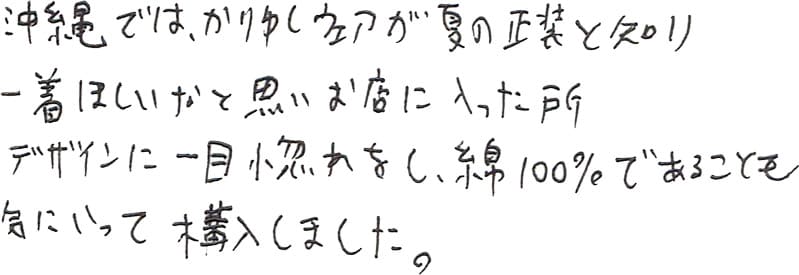 沖縄では、かりゆしウェアが夏の正装と知り
一着ほしいなと思いお店に入った所
デザインに一目惚れをし、綿100%であることも
気にいって購入しました。